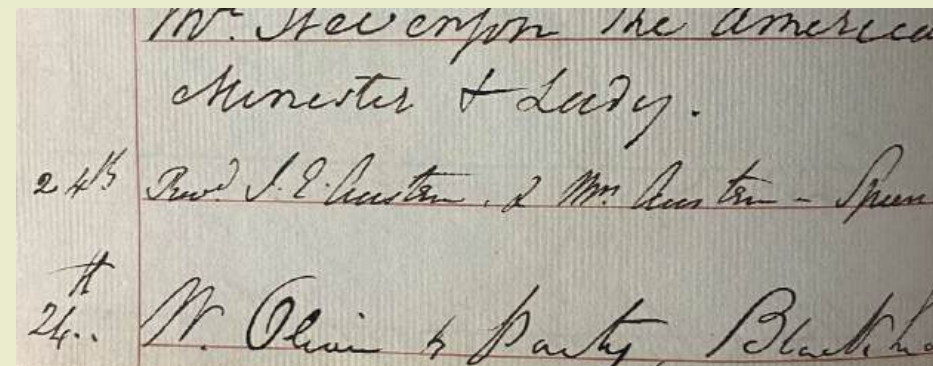 Mr. Stevenson The America
Minester & Lady.
24th Revd. J. E. Austen. & Mrs. Austen - Speen
24th.. W. Oliver & Party, Blackhe